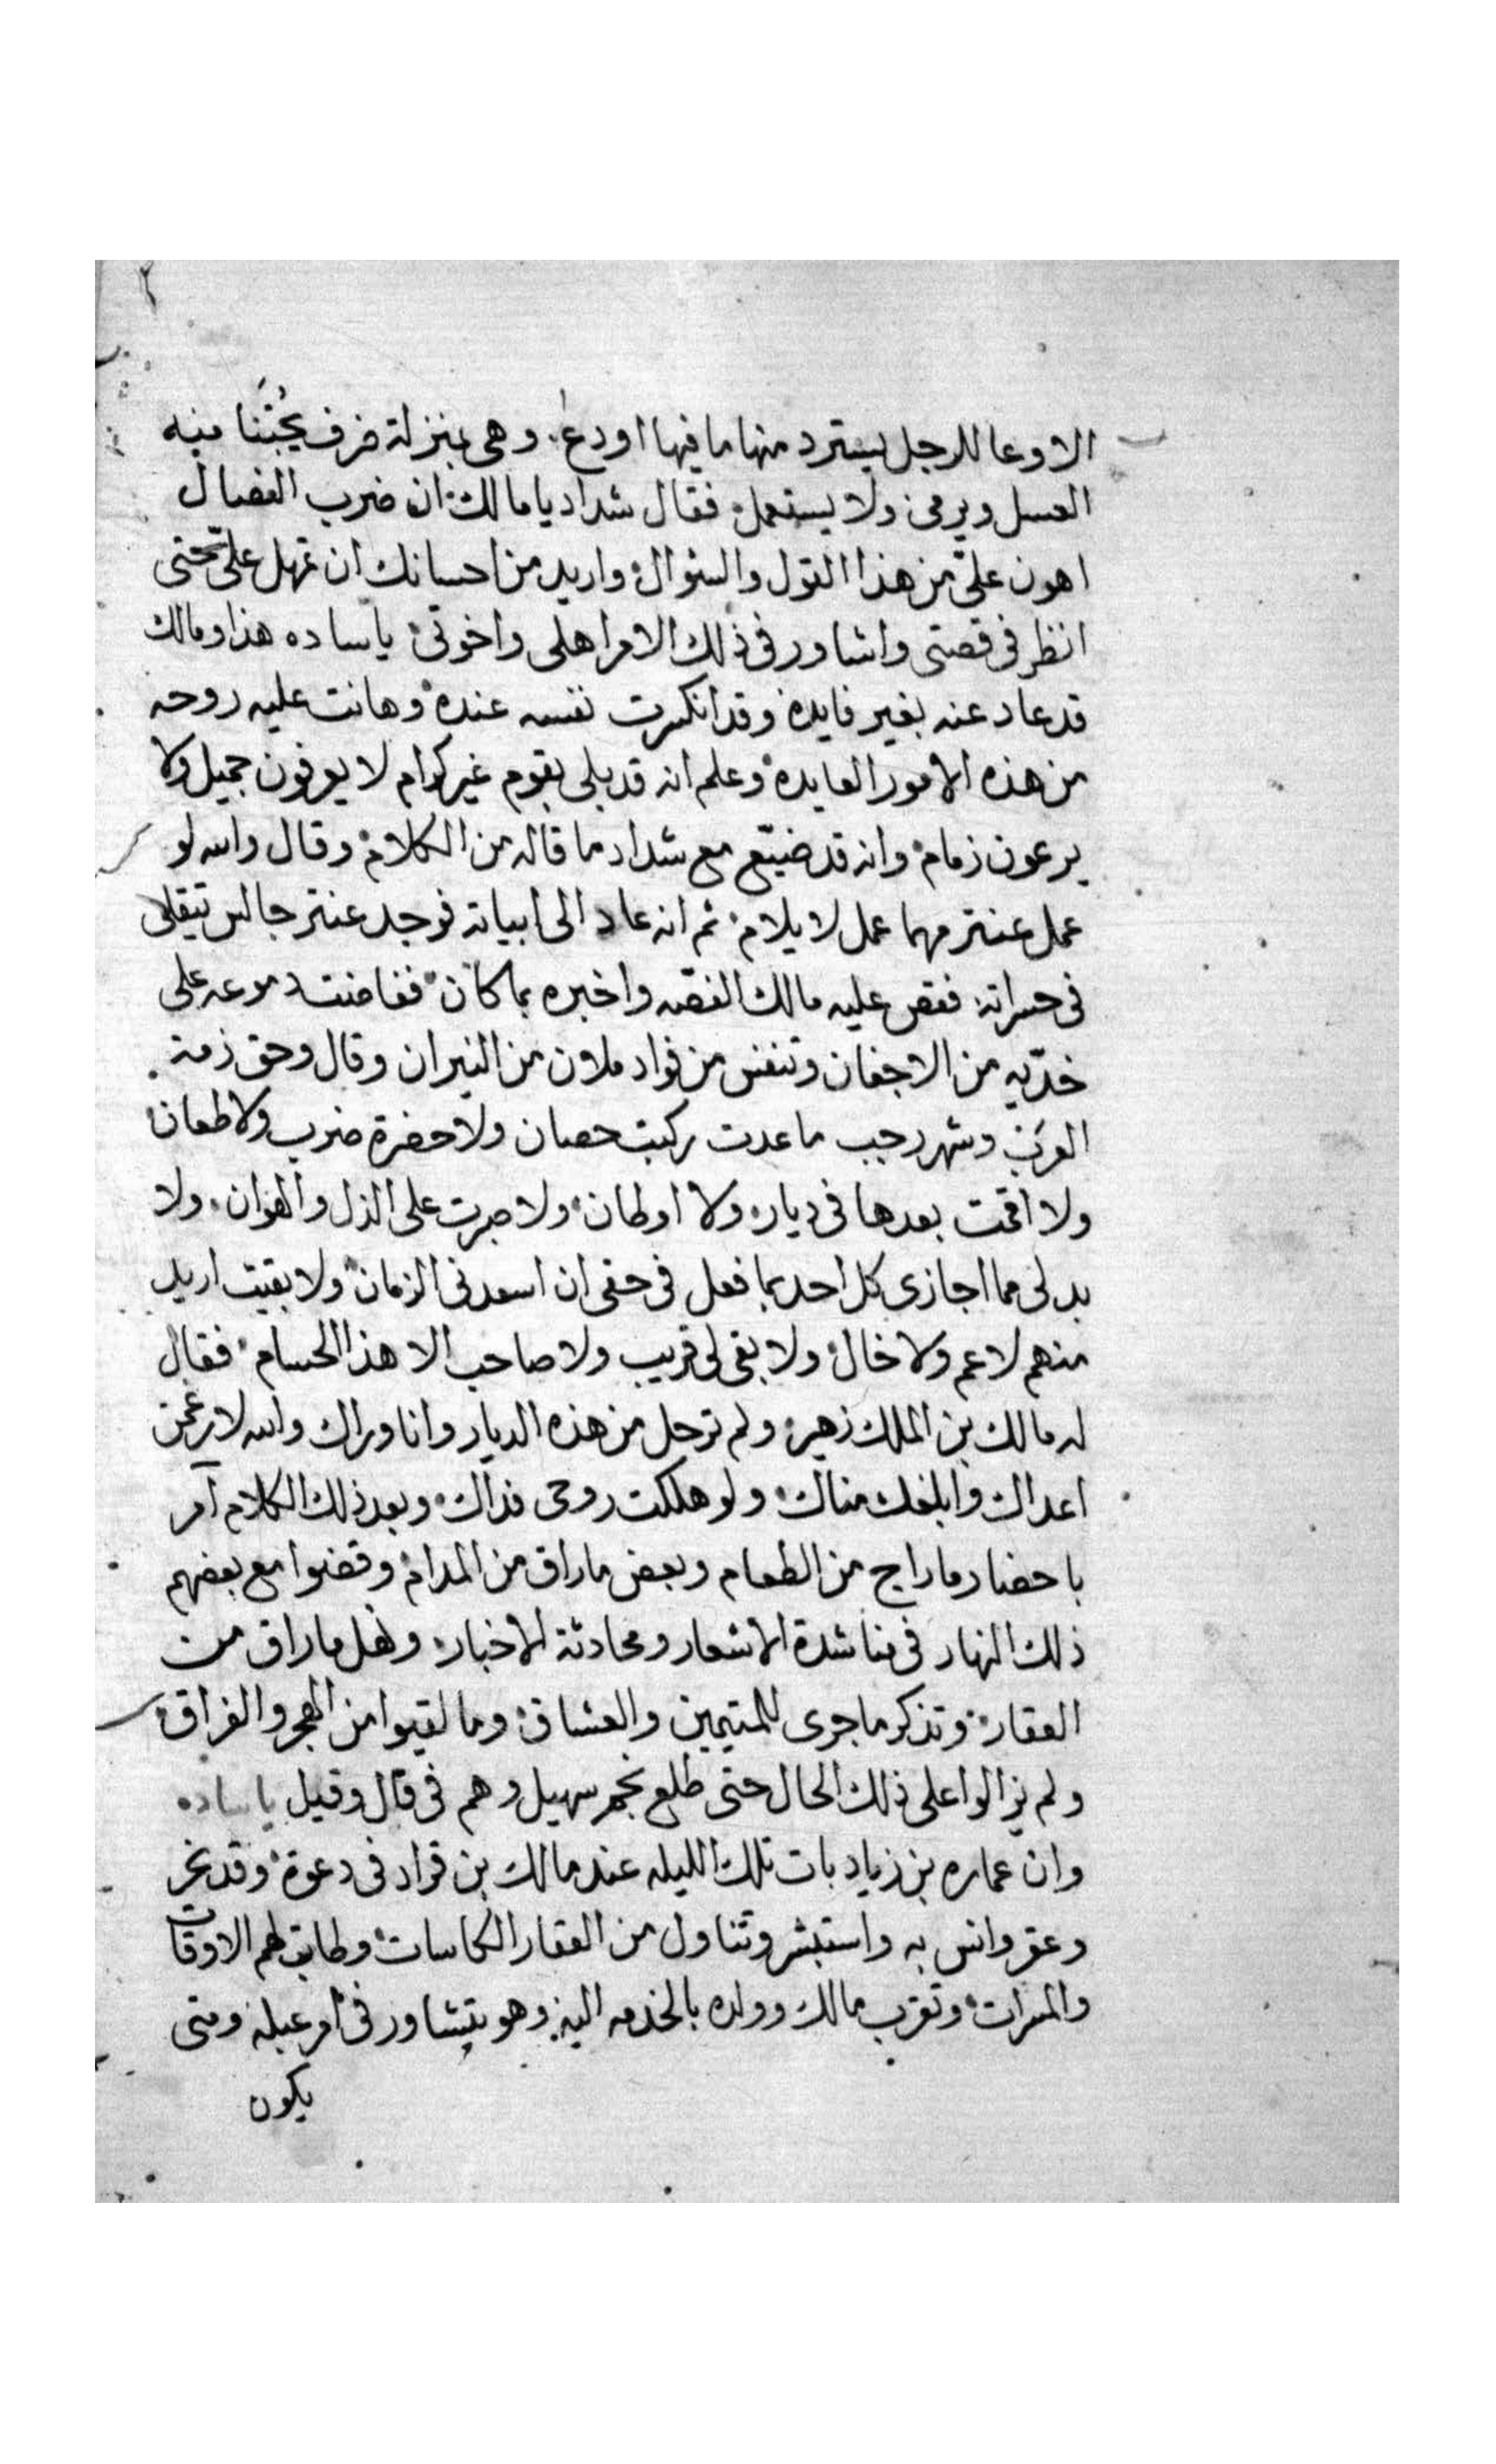 ٢
الا وعا للرجل يسترد منها ما فيها اودع. وهى بمنزلة ضرف يُجْتَنا منه
العسل ويرمى ولا يستعمل فقال شداد يا مالك ان ضرب الفصال
اهون علىّ من هذا القول والسئوال واريد من احسانك ان تمهل علىّ حتى
انظر فى قصتى واشاور فى ذلك الامر اهلى واخوتى ياساده هذا ومالك
قد عاد عنه بغير فايده وقد انكسرت نفسه عنده وهانت عليه روحه
من هذه الامور العايده وعلم انه قد بلى بقوم غير كرام لا يعرفون جميل ولا
يرعون زمام وانه قد ضيّع مع شداد ما قاله من الكلام وقال والله لو
عمل عنتر مهما عمل لا يلام ثم انه عاد الى ابياته فوجد عنتر جالس يتقلى
فى حسراته فقص عليه مالك القصّه واخبره بما كان ففاضت دموعه على
خدّيه من الاجفان وتنفس من فواد ملان من النيران وقال وحق ذمة
العرب وشهر رجب ما عدت ركبت حصان ولا حضرة ضرب ولا طعان
ولا اقمت بعدها فى ديار ولا اوطان ولا صبرت على الذل والهوان ولا
بد لى مما اجازى كل احد بما فعل فى حقى ان اسعدنى الزمان ولا بقيت اريد
منهم لا عم ولا خال ولا بقى لى قريب ولا صاحب الا هذا الحسام فقال
له مالك بن الملك زهير ولم ترحل من هذه الديار وانا وراك والله لارغمن
اعداك وابلغك مناك ولو هلكت روحى فداك وبعد ذلك الكلام آمر
باحضار ما راج من الطعام وبعض ما راق من المدام وقضوا مع بعضهم
ذلك النهار فى مناشدة الاشعار ومحادثة الاخبار ونهل ما راق من
العقار وتذكر ما جرى للمتيمين والعشاق وما لقيوا من الهجر والفراق
ولم يزالوا على ذلك الحال حتى طلع نجم سهيل وهم فى قال وقيل ياساده
وان عماره بن زياد بات تلك الليله عند مالك بن قراد فى دعوة وقد نحر
وعقر وانس به واستبشر وتناول من العقار الكاسات وطابت لهم الاوقات
والمسرات وتقرب مالك وولده بالخدمه اليه وهو يتشاور فى امر عبله ومتى
يكون